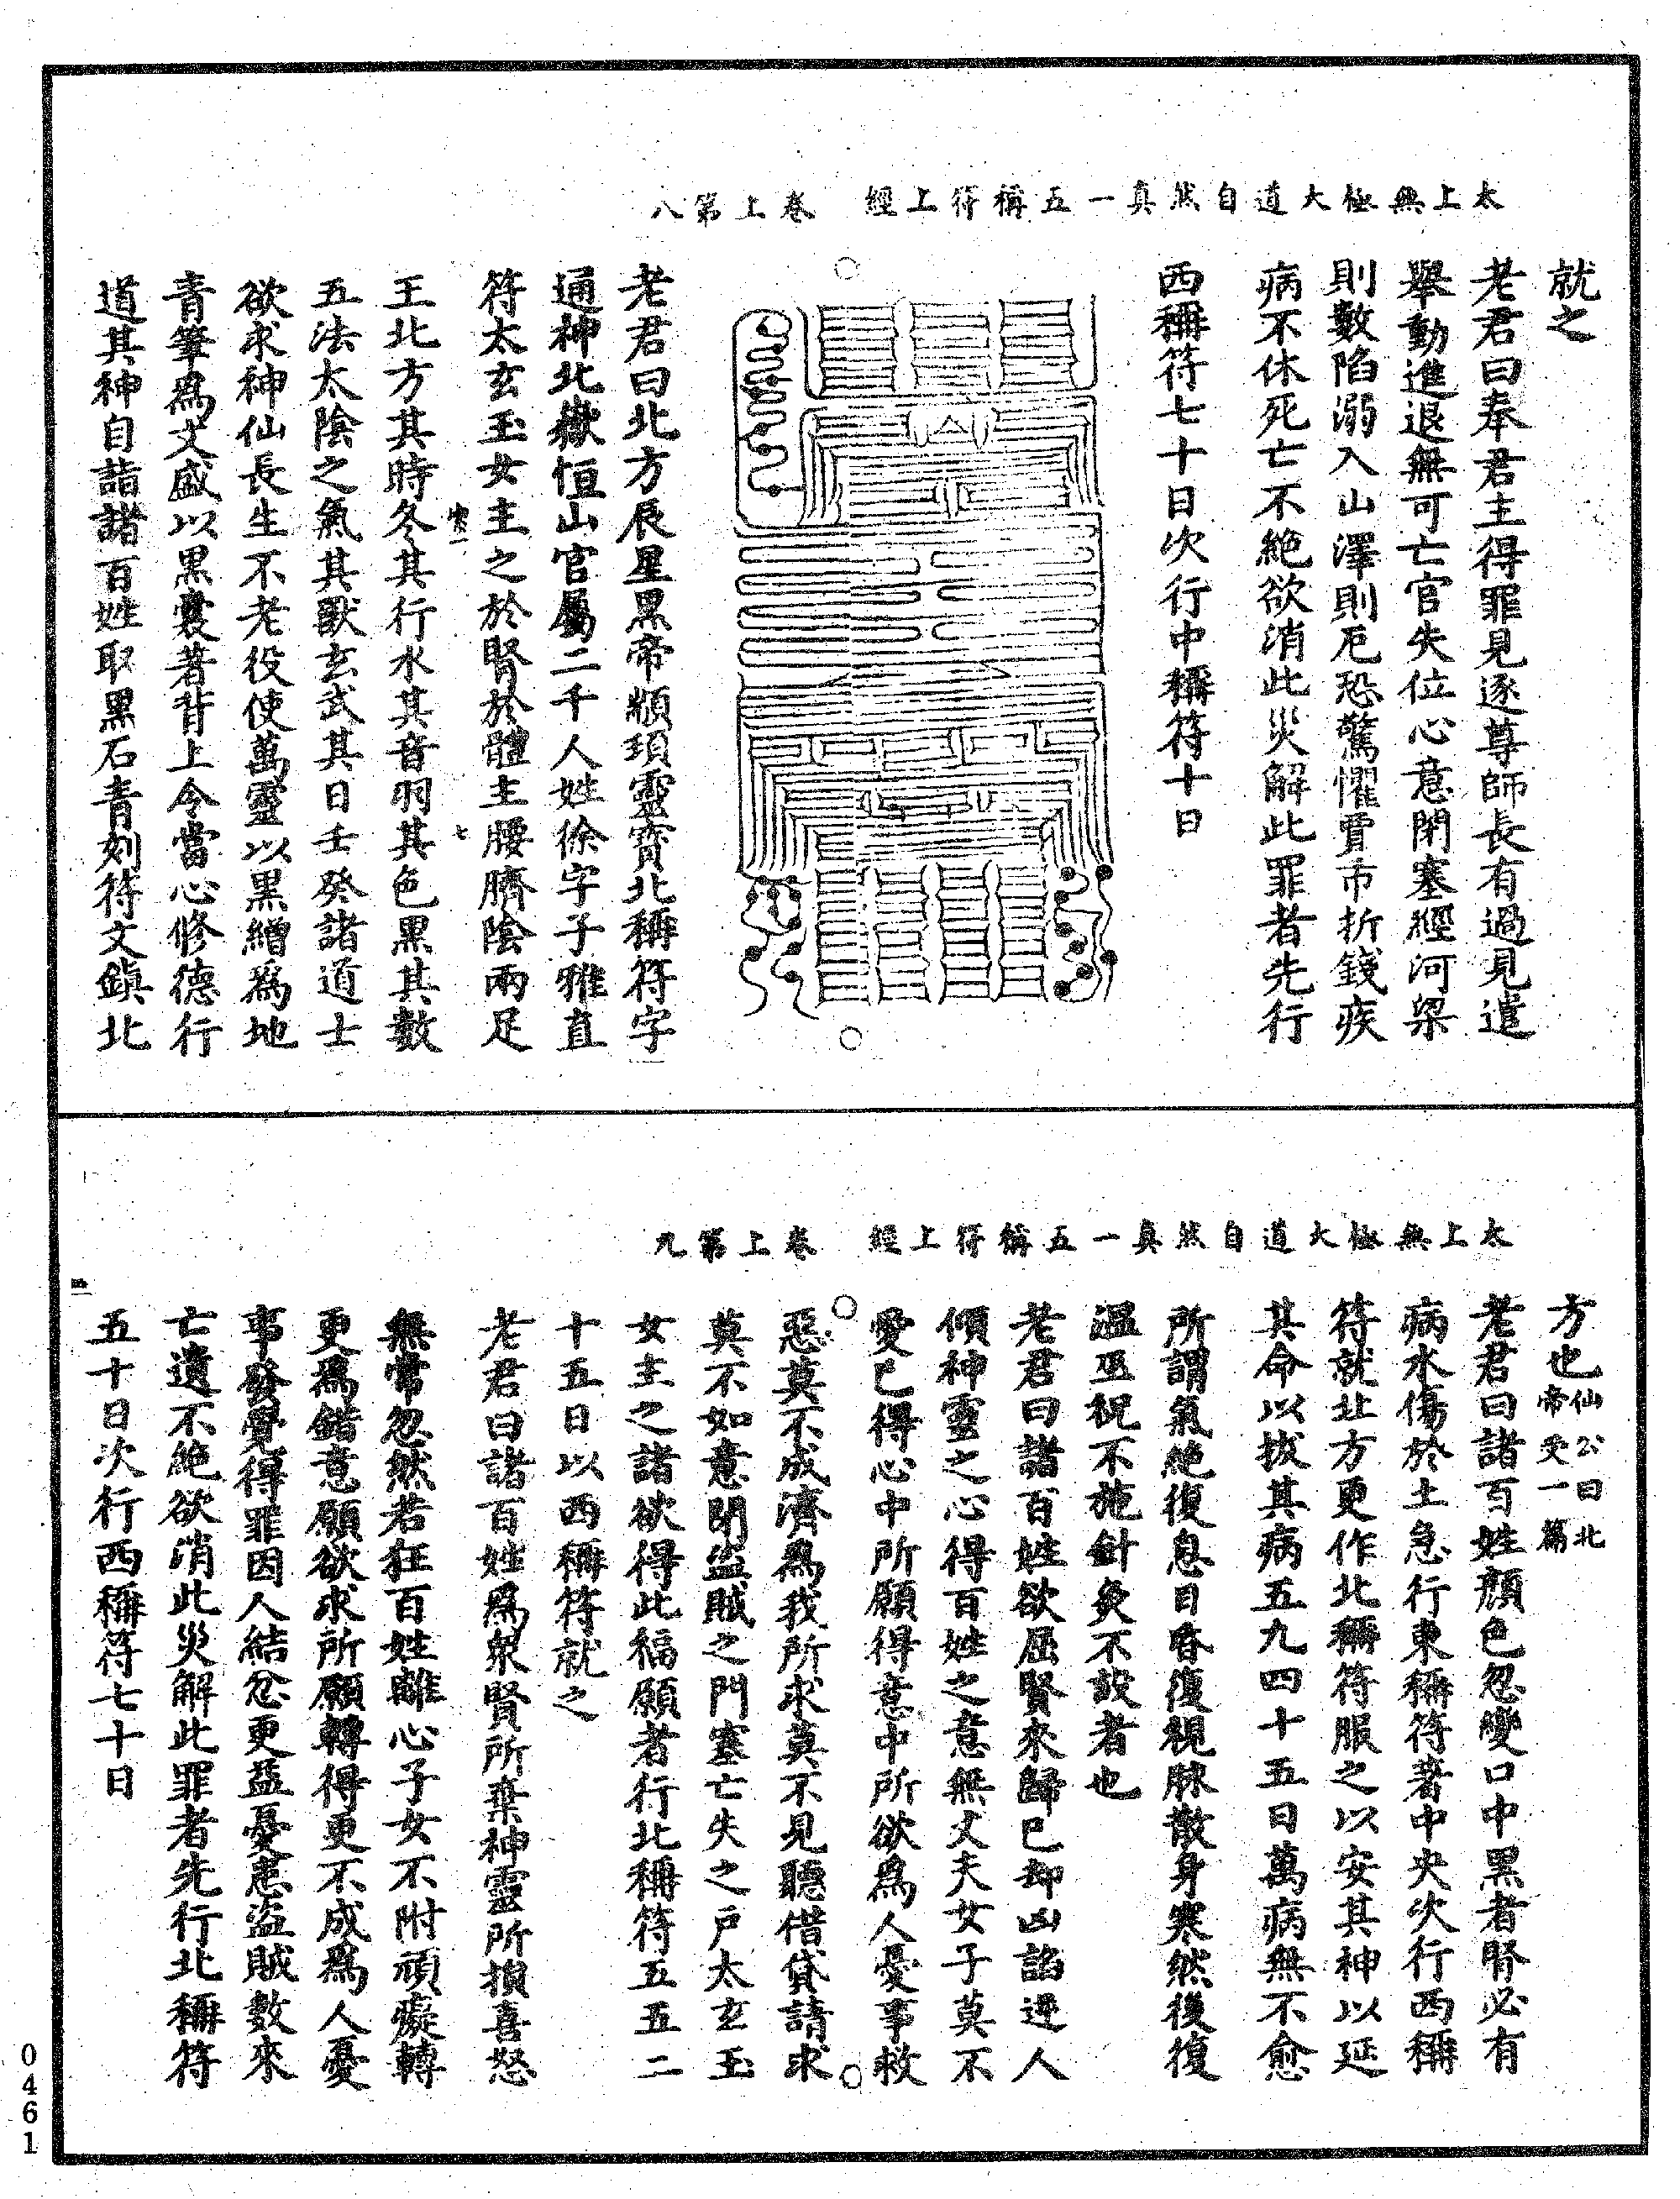 太上無極大道自然真一五稱符上經 卷上第八
就之
老君曰奉君主得罪見逐尊師長有過見遣
舉動進退無可亡官失位心意閉塞經河梁
則數陷溺入山澤則厄恐驚懼賈市折錢疾
病不休死亡不絕欲消此災解此罪者先行
西稱符七十日次行中稱符十日
老君曰北方辰星黑帝顓頊靈寶北稱符字
通神北嶽恒山官屬二千人姓徐字子雅直
符太玄玉女主之於腎於體主腰臍陰兩足
王北方其時冬其行水其音羽其色黑其數
五法太陰之氣其獸玄武其日壬癸諸道士
欲求神仙長生不老役使萬靈以黑繒為地
青筆為文盛以黑囊著背上令當心修德行
道其神自詣諸百姓取黑石青刻符文鎮北
太上無極大道自然真一五稱符上經 卷上第九
方也仙公曰北帝受一篇
老君曰諸百姓顏色忽變口中黑者腎必有
病水傷於土急行東稱符著中央次行西稱
符就北方更作北稱符服之以安其神以延
其命以拔其病五九四十五日萬病無不愈
所謂氣絕復息目昏復視脉散身寒然後復
溫巫祝不施針灸不設者也
老君曰諸百姓欲屈賢來歸已却凶諂逆人
傾神靈之心得百姓之意無丈夫女子莫不
愛已得心中所願得意中所欲為人憂事救
惡莫不成濟為我所求莫不見聽借貸請求
莫不如意閉盜賊之門塞亡失之戶太玄玉
女主之諸欲得此福願者行北稱符五五二
十五日以西稱符就之
老君曰諸百姓為眾賢所棄神靈所損喜怒
無常忽然若狂百姓離心子女不附頑癡轉
更為錯意願欲求所願轉得更不成為人憂
事發覺得罪因人結忿更益憂患盜賊數來
亡遺不絕欲消此災解此罪者先行北稱符
五十日次行西稱符七十日
0461